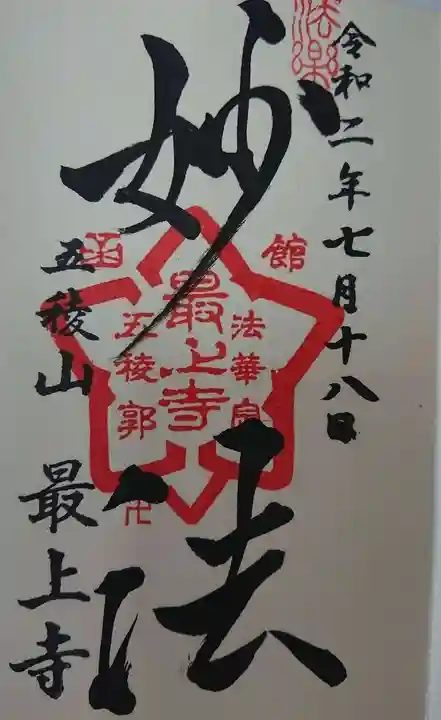 令和二年七月十八日
妙法
五稜山 最上寺
法楽
函館
法華宗
最上寺
五稜郭
卍